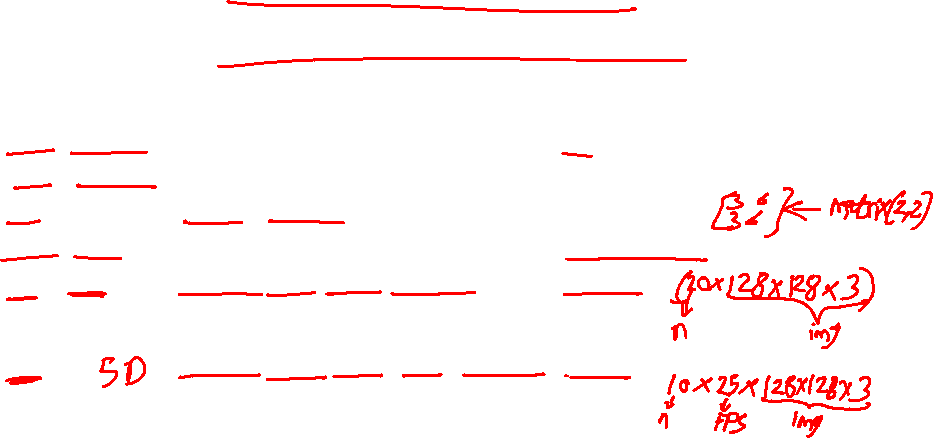 [3 6
3 6] ← matrix(2,2)
(20×128×128×3)
n img
5D 10×25×128×128×3
n FPS img